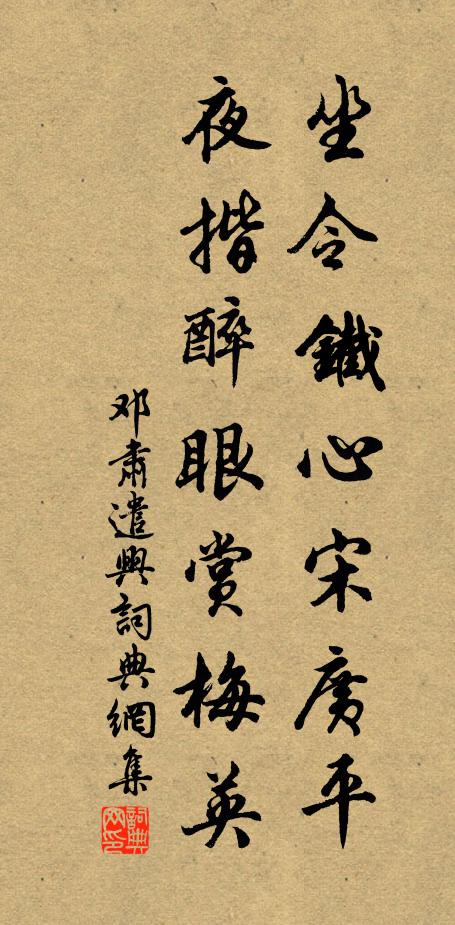 坐令鐵心宋廣平
夜揩醉眼賞梅英
邓肅遣興詞典網集
詞典網印